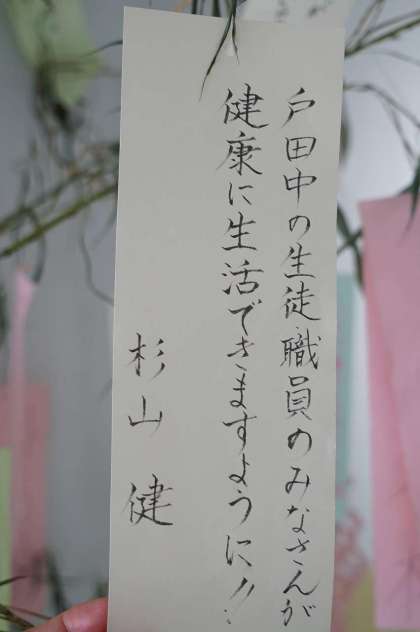 戸田中の生徒・職員のみなさんが
健康に生活できますように!!
杉山 健